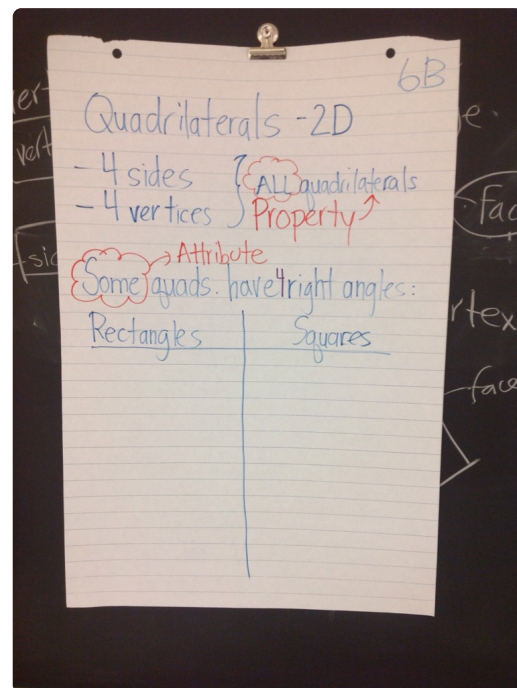 6B
Quadrilaterals - 2D
- 4 sides
- 4 vertices
ALL quadrilaterals
Property
Attribute
Some quads. have 4 right angles:
Rectangles Squares
vert
sid
rtex
face